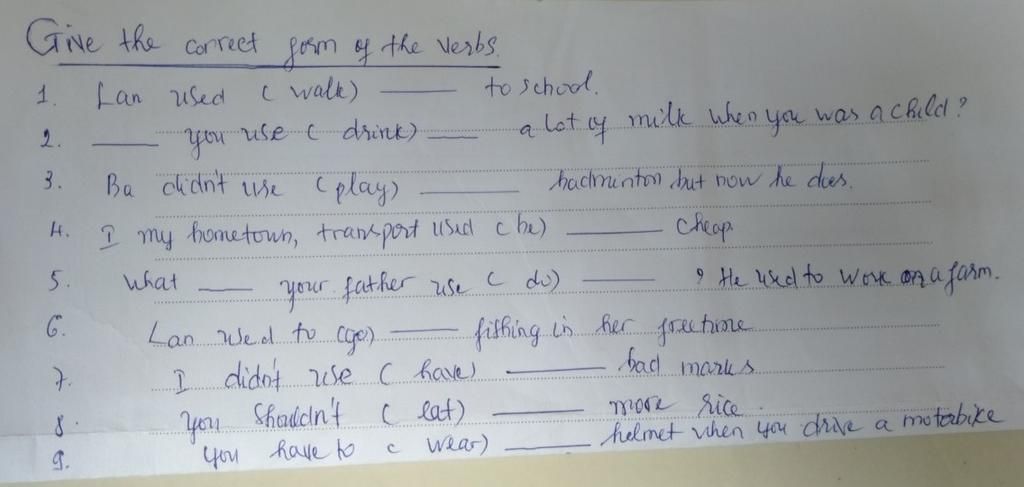 Give the correct form of the verbs.
1. Lan used (walk) ____ to school.
2. ____ you use (drink) ____ a lot of milk when you was a child?
3. Ba didn't use (play) ____ badminton but now he does.
4. I my hometown, transport used (be) ____ cheap.
5. What ____ your father use (do) ____ ? He used to work on a farm.
6. Lan used to (go) ____ fishing in her freetime
7. I didn't use (have) ____ bad marks
8. You shouldn't (eat) ____ more rice.
9. You have to (wear) ____ helmet when you drive a motorbike